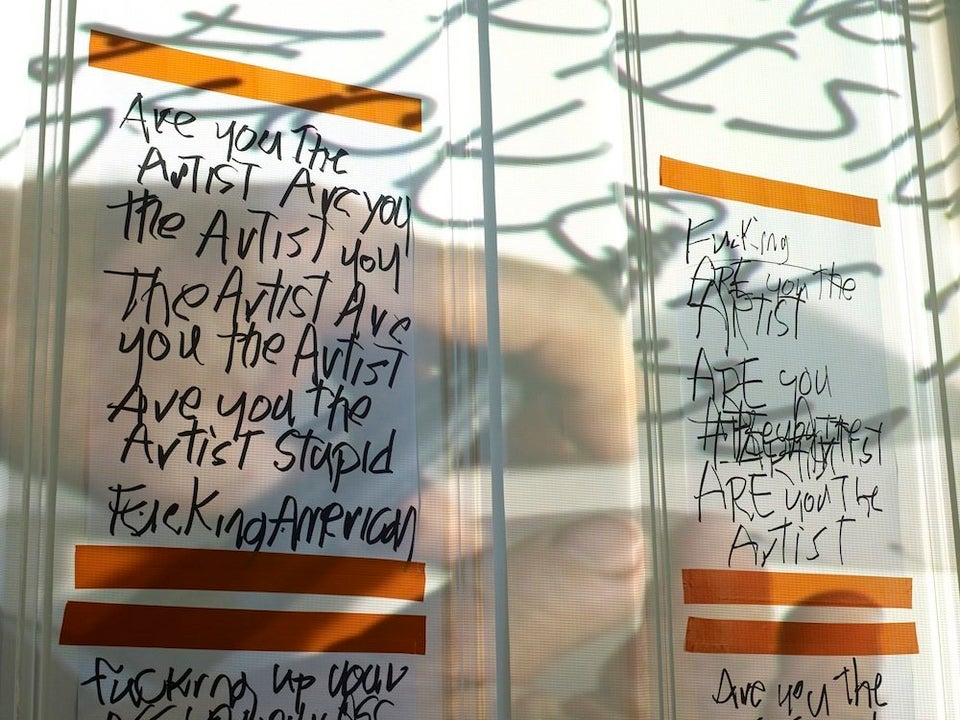 Are you The
ARTIST Are you
the Artist you
The Artist Are
you the Artist
Are you the
Artist Stupid
Fucking American
fucking up your
Fucking
ARE you the
ARTIST
ARE you
ARE you The
Artist
Are you the